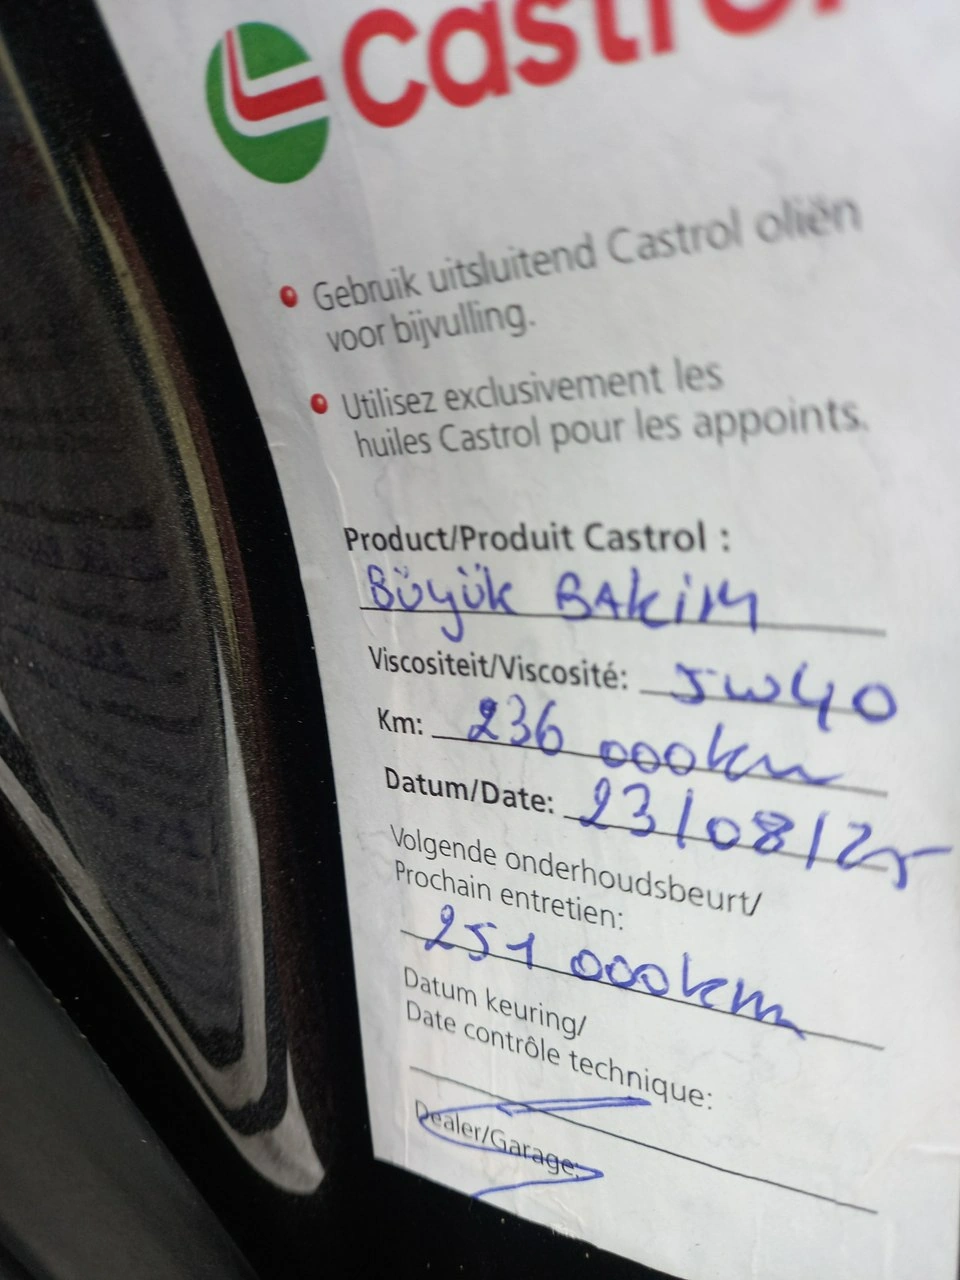 Castrol
Gebruik uitsluitend Castrol oliën
voor bijvulling.
Utilisez exclusivement les
huiles Castrol pour les appoints.
Product/Produit Castrol :
Büyük BAKiM
Viscositeit/Viscosité: 5W40
Km: 236 000km
Datum/Date: 23/08/25
Volgende onderhoudsbeurt/
Prochain entretien:
251 000km
Datum keuring/
Date contrôle technique:
Dealer/Garage: